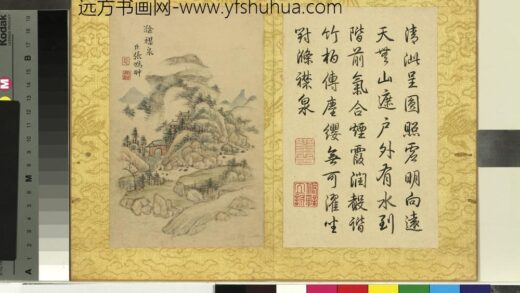 远方书画网-www.yfshuhua.com
清泚呈圓照虛明向遠
天無山遮戶外有水到
階前氣合煙霞潤聲諧
竹柏傳塵纓無可濯坐
對滌襟泉
滌襟泉
臣張鵬翀
Kodak